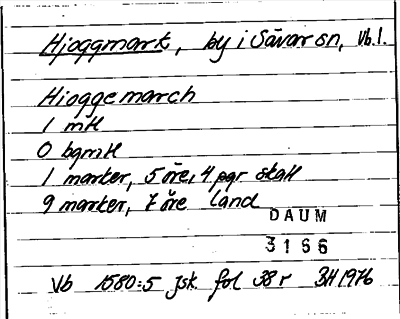 Hjoggmark, by i Sävar sn, Vb.l.
Hioggemarch
1 mtl
0 bgmtl
1 marker, 5 öre, 4 pgr skatt
9 marker, 7 öre land
DAUM
3166
Vb 1580:5 jsk fol 38 r BH 1976